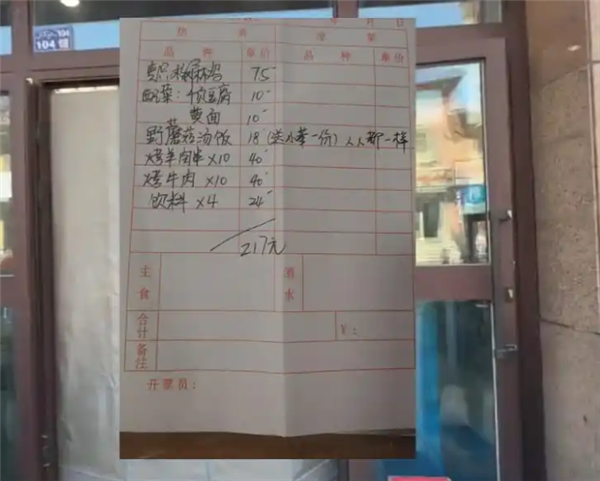 104
104 馆
年 月 日
热 菜 凉 菜
品 种 单价 品 种 单价
75
配菜：干豆腐 10
黄面 10
野蘑菇汤饭 18 (送小菜一份) 人人都一样
烤羊肉串 ×10 40
烤牛肉 ×10 40
饮料 ×4 24
217元
主食 酒水
合计 ¥：
备注
开票员：